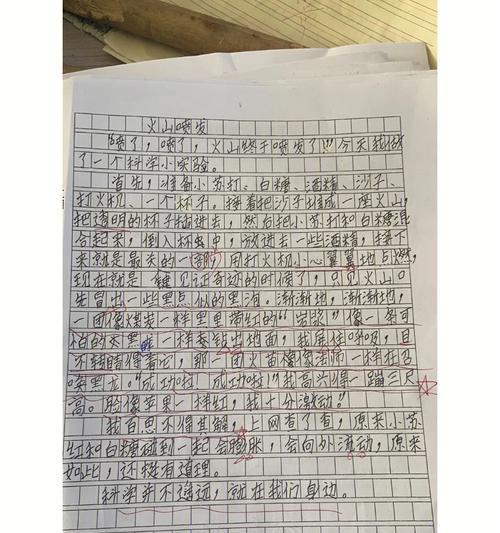 火山喷发
“喷了，喷了，火山终于喷发了！”今天我做
了一个科学小实验。
首先，准备小苏打、白糖、酒精、沙子、
打火机、一个杯子。接着把沙子堆成一座火山，
把透明的杯子插进去，然后把小苏打和白糖混
合起来，倒入杯中，放进去一些酒精，接下
来就是最关的一部，用打火机小心翼翼地点燃，
现在就是见证奇迹的时候了，只见火山口
先冒出一些黑点似的黑泡。渐渐地，渐渐地，
一团像煤炭一样黑里带红的“岩浆”像一条可
怕的大黑蛇一样委钻出地面，我屏住呼吸，目
不转睛得看它，那一团火苗像魔法师一样在召
唤黑龙。“成功啦！成功啦！”我高兴得一蹦三尺
高。脸像苹果一样红，我十分激动！
我百思不得其解，上网查了查，原来小苏
红和白糖碰到一起会膨胀，会向外流动，原来
如此，还挺有道理。
科学并不遥远，就在我们身边。